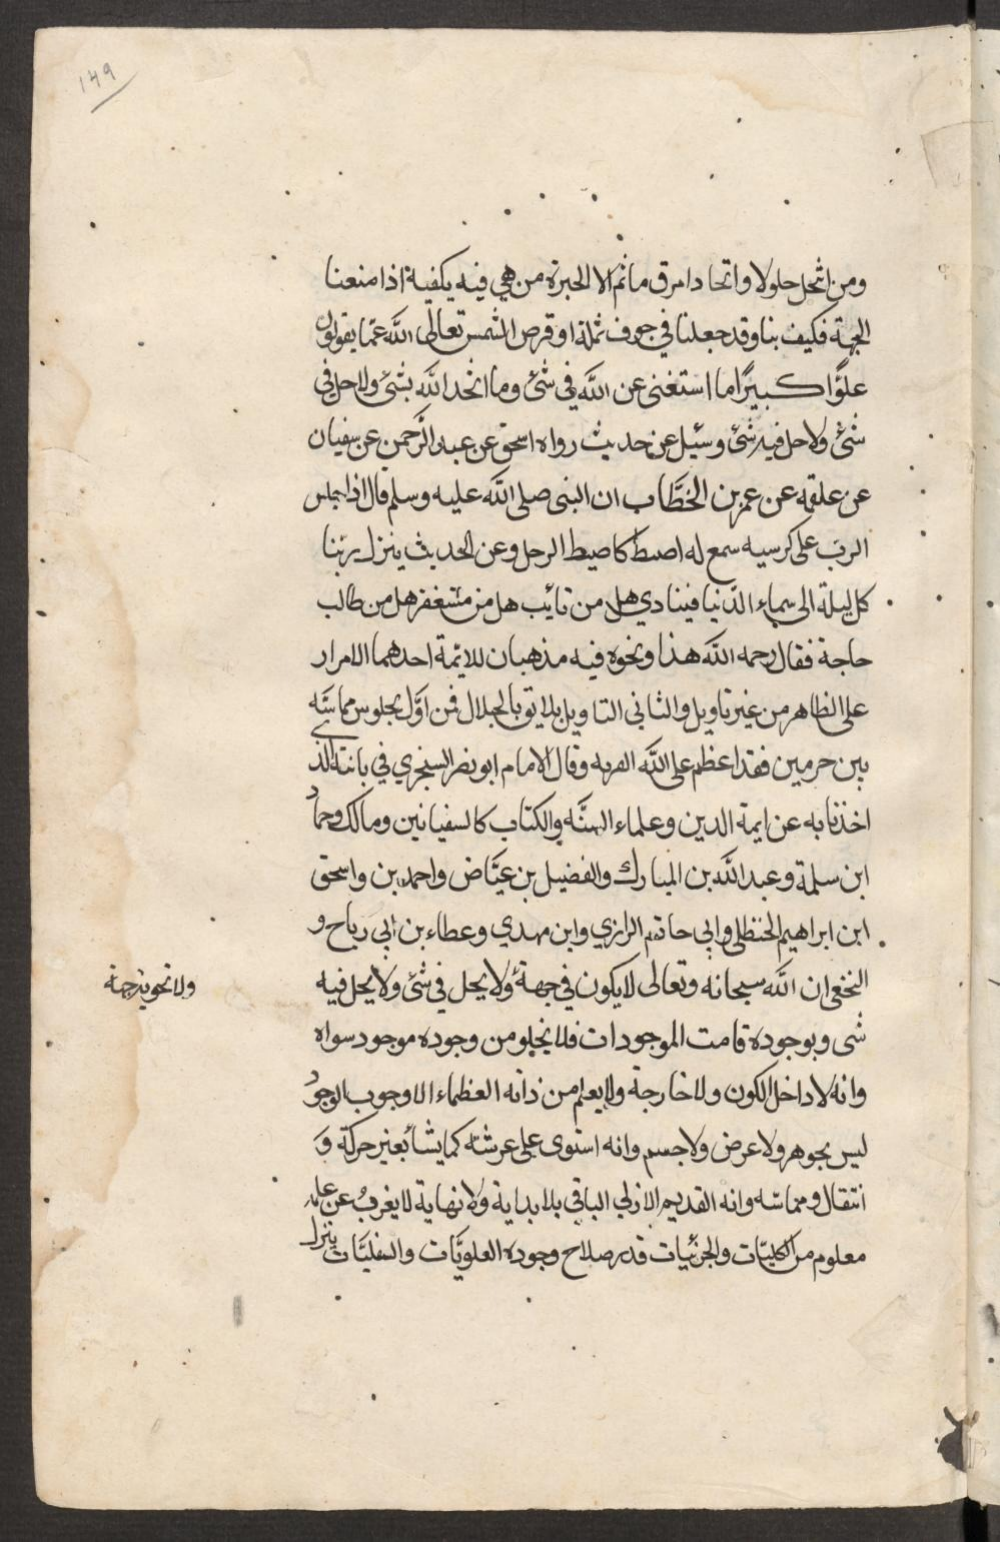 ١٤٩
ومن انتحل حلولا واتحادا مرق ما ثم الا الحبرة من هي فيه يكفية اذا منعنا
الجهة فكيف بنا وقد جعلنا في جوف ثملة او قرص الشمس تعالى الله عما يقولون
علوًّا كبيرًا ما استغنى عن الله في شئ وما اتحد الله بشئ ولا حل في
شئ ولا حل فيه شئ وسئيل عن حديث رواه اسحق عن عبد الرَّحمن عن سفيان
عن علقمه عن عمر بن الخطَّاب ان النبى صلى الله عليه وسلم قال اذا جلس
الرب على كرسيه سمع له اصيط كاصيط الرحل وعن الحديث ينزل ربنا
كل ليلة الى سماء الدنيا فينادي هل من تائب هل من مستغفر هل من طالب
حاجة فقال رحمه الله هذا ونحوه فيه مذهبان للائمة احدهما الامرار
على الظاهر من غير تاويل والثاني التاويل بلايق بالجلال فمن اوَّل بجلوس مماسَّه
بين جرمين فقد اعظم على الله الفريه وقال الامام ابو نصر السنجري في بانته الذي
اخذنا به عن ايمة الدين وعلماء السنَّه والكتاب كالسفيانين ومالك وحماد
ابن سلمة وعبد الله بن المبارك والفضيل بن عيَّاض واحمد بن واسحق
ابن ابراهيم الحنظلى وابي حاتم الرازي وابن مهدي وعطاء بن ابي رباح و
النخعي ان الله سبحانه وتعالى لا يكون في جهة ولا يحل في شئ ولا يحل فيه
ولا تحويه جهة
شى وبوجوده قامت الموجودات فلا يخلو من وجوده موجود سواه
وانه لا داخل الكون ولا خارجة ولا يعلم من ذاته العظماء الا وجوب الوجود
ليس بجوهر ولا عرض ولا جسم وانه استوى على عرشه كما يشأ بغير حركة و
انتقال ومماسه وانه القديم الازلي الباقي بلا بداية ولا نهاية لا يغرب عن علمه
معلوم من الكليَّات والجزئيات قدر صلاح وجوده العلويَّات والسفليَّات ينزل